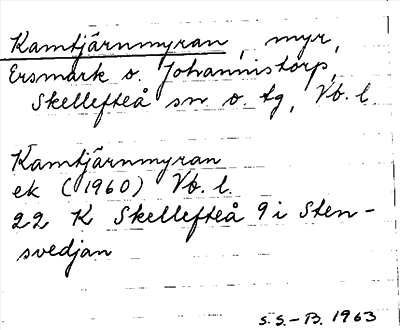 Kamtjärnmyran, myr,
Ersmark o. Johannistorp,
Skellefteå sn o. tg, Vb. l.
Kamtjärnmyran
ek (1960) Vb. l.
22 K Skellefteå 9 i Sten-
svedjan
S. S. - B. 1963